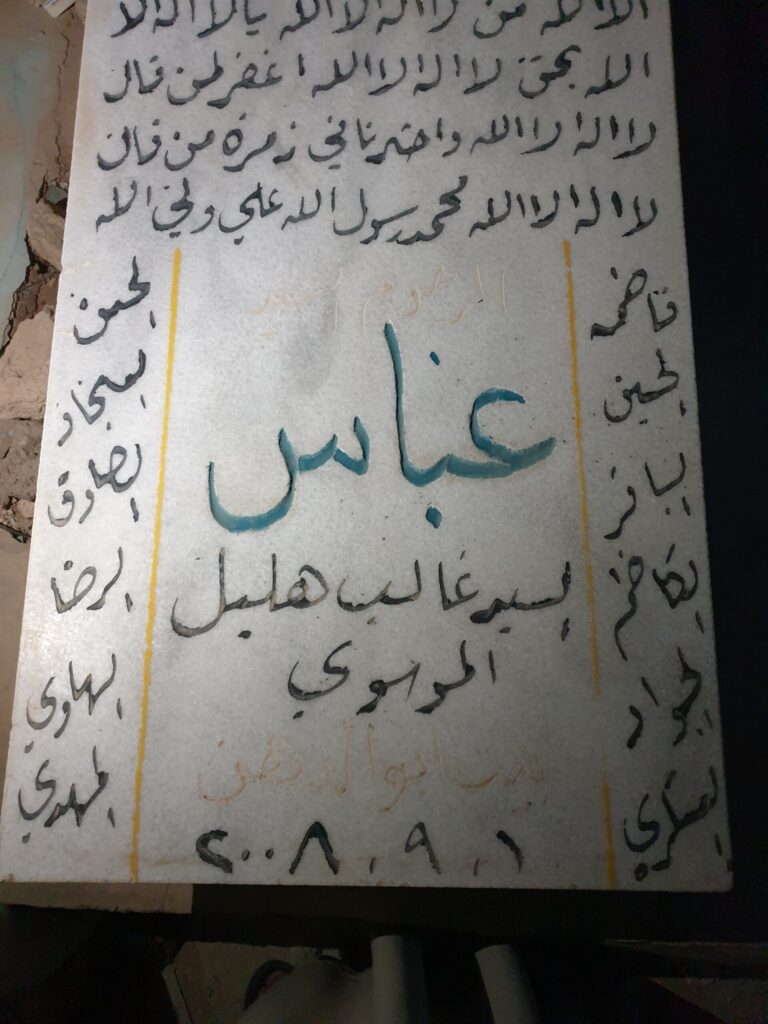 الا الله من لا اله الا الله يا لا اله الا
الله بحق لا اله الا الله اغفر لمن قال
لا اله الا الله واحشرنا في زمرة من قال
لا اله الا الله محمد رسول الله علي ولي الله
المرحوم السيد
عباس
السيد غالب هليل
الموسوي
بيت ابو الدهن
٢٠٠٨،٩،١
فاطمه
الحسين
الباقر
الكاظم
الجواد
العسكري
الحسن
السجاد
الصادق
الرضا
الهادي
المهدي